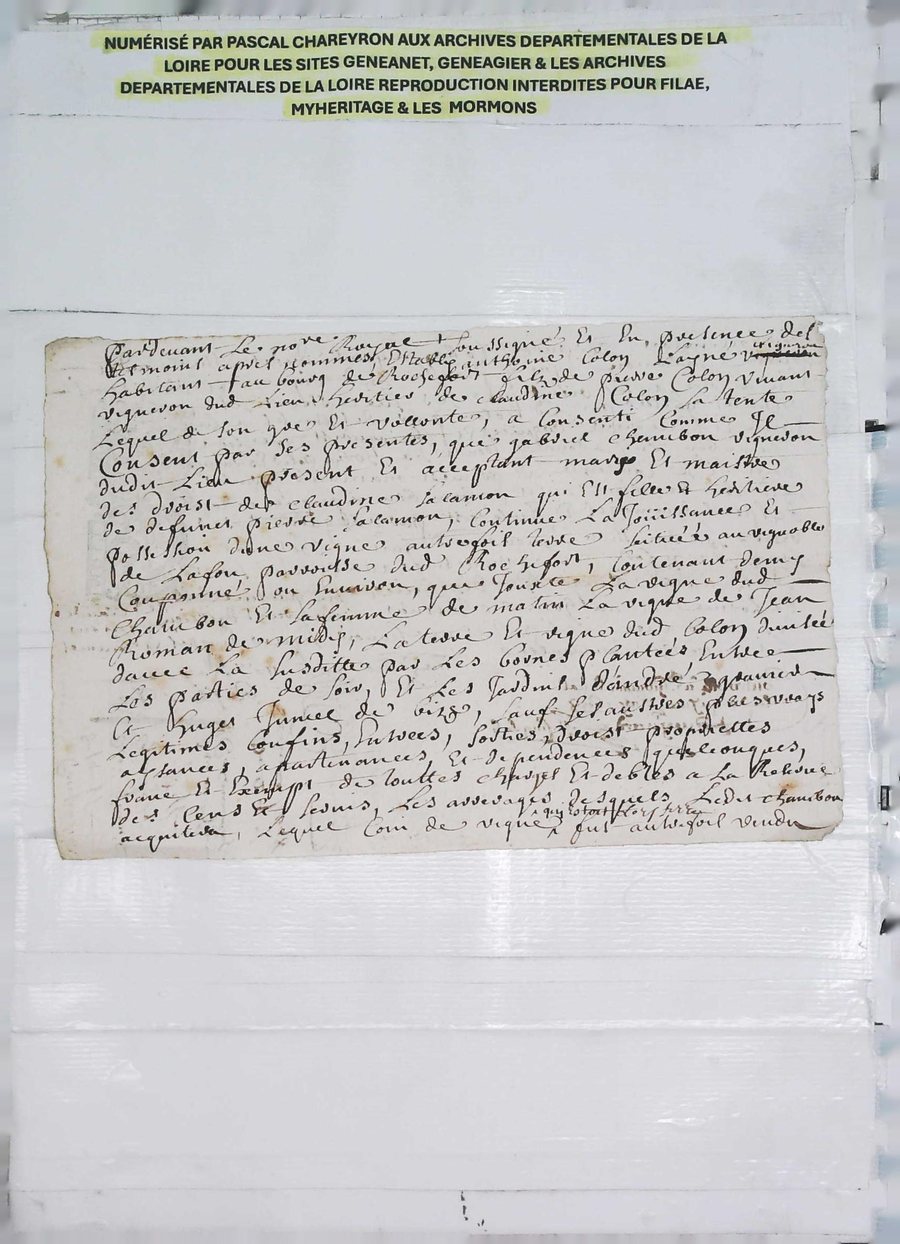 NUMÉRISÉ PAR PASCAL CHAREYRON AUX ARCHIVES DEPARTEMENTALES DE LA
LOIRE POUR LES SITES GENEANET, GENEAGIER & LES ARCHIVES
DEPARTEMENTALES DE LA LOIRE REPRODUCTION INTERDITES POUR FILAE,
MYHERITAGE & LES MORMONS
Pardevant Le nore Royal soussigné Et En presence des
tesmoins apres nommes Estably anthoine Colon Layné vigneron
habitant au bourg de Rochefort filz de pierre Colon vivant
vigneron dud Lieu heritier de claudine Colon sa tente
Lequel de son gre Et vollonte, a Consenti Comme Il
Consent par ses presentes, que gabriel chambon vigneron
dudit Lieu present Et acceptant mary Et maistre
des droist de claudine salamon qui Est fille Et heritiere
de defunct pierre salamon, Continue La Jouissance Et
possession dune vigne autrefoil terre scituée au vignoble
de Lafon, parroisse dud Rochefort, Contenant demy
Couponné ou Environ, que Jouxte La vigne dud
Chambon Et sa femme de matin La vigne de Jean
Roman de midy, La terre Et vigne dud Colon divisée
davec La susditte par Les bornes plantées Entre
Les parties de soir, Et Les Jardins dandré
Et huges Jumel de bize, sauf ses autres plus vrays
Legitimes Confins, Entrees, sorties, droist proprietes
aysances, apartenances, Et dependences quelconques,
franc Et Exempt de touttes charges Et debtes a La Reserve
des Cens Et servis, Les arrerages desquels Ledit chambon
acquitera, Lequel Coin de vigne fut autrefoil vendu